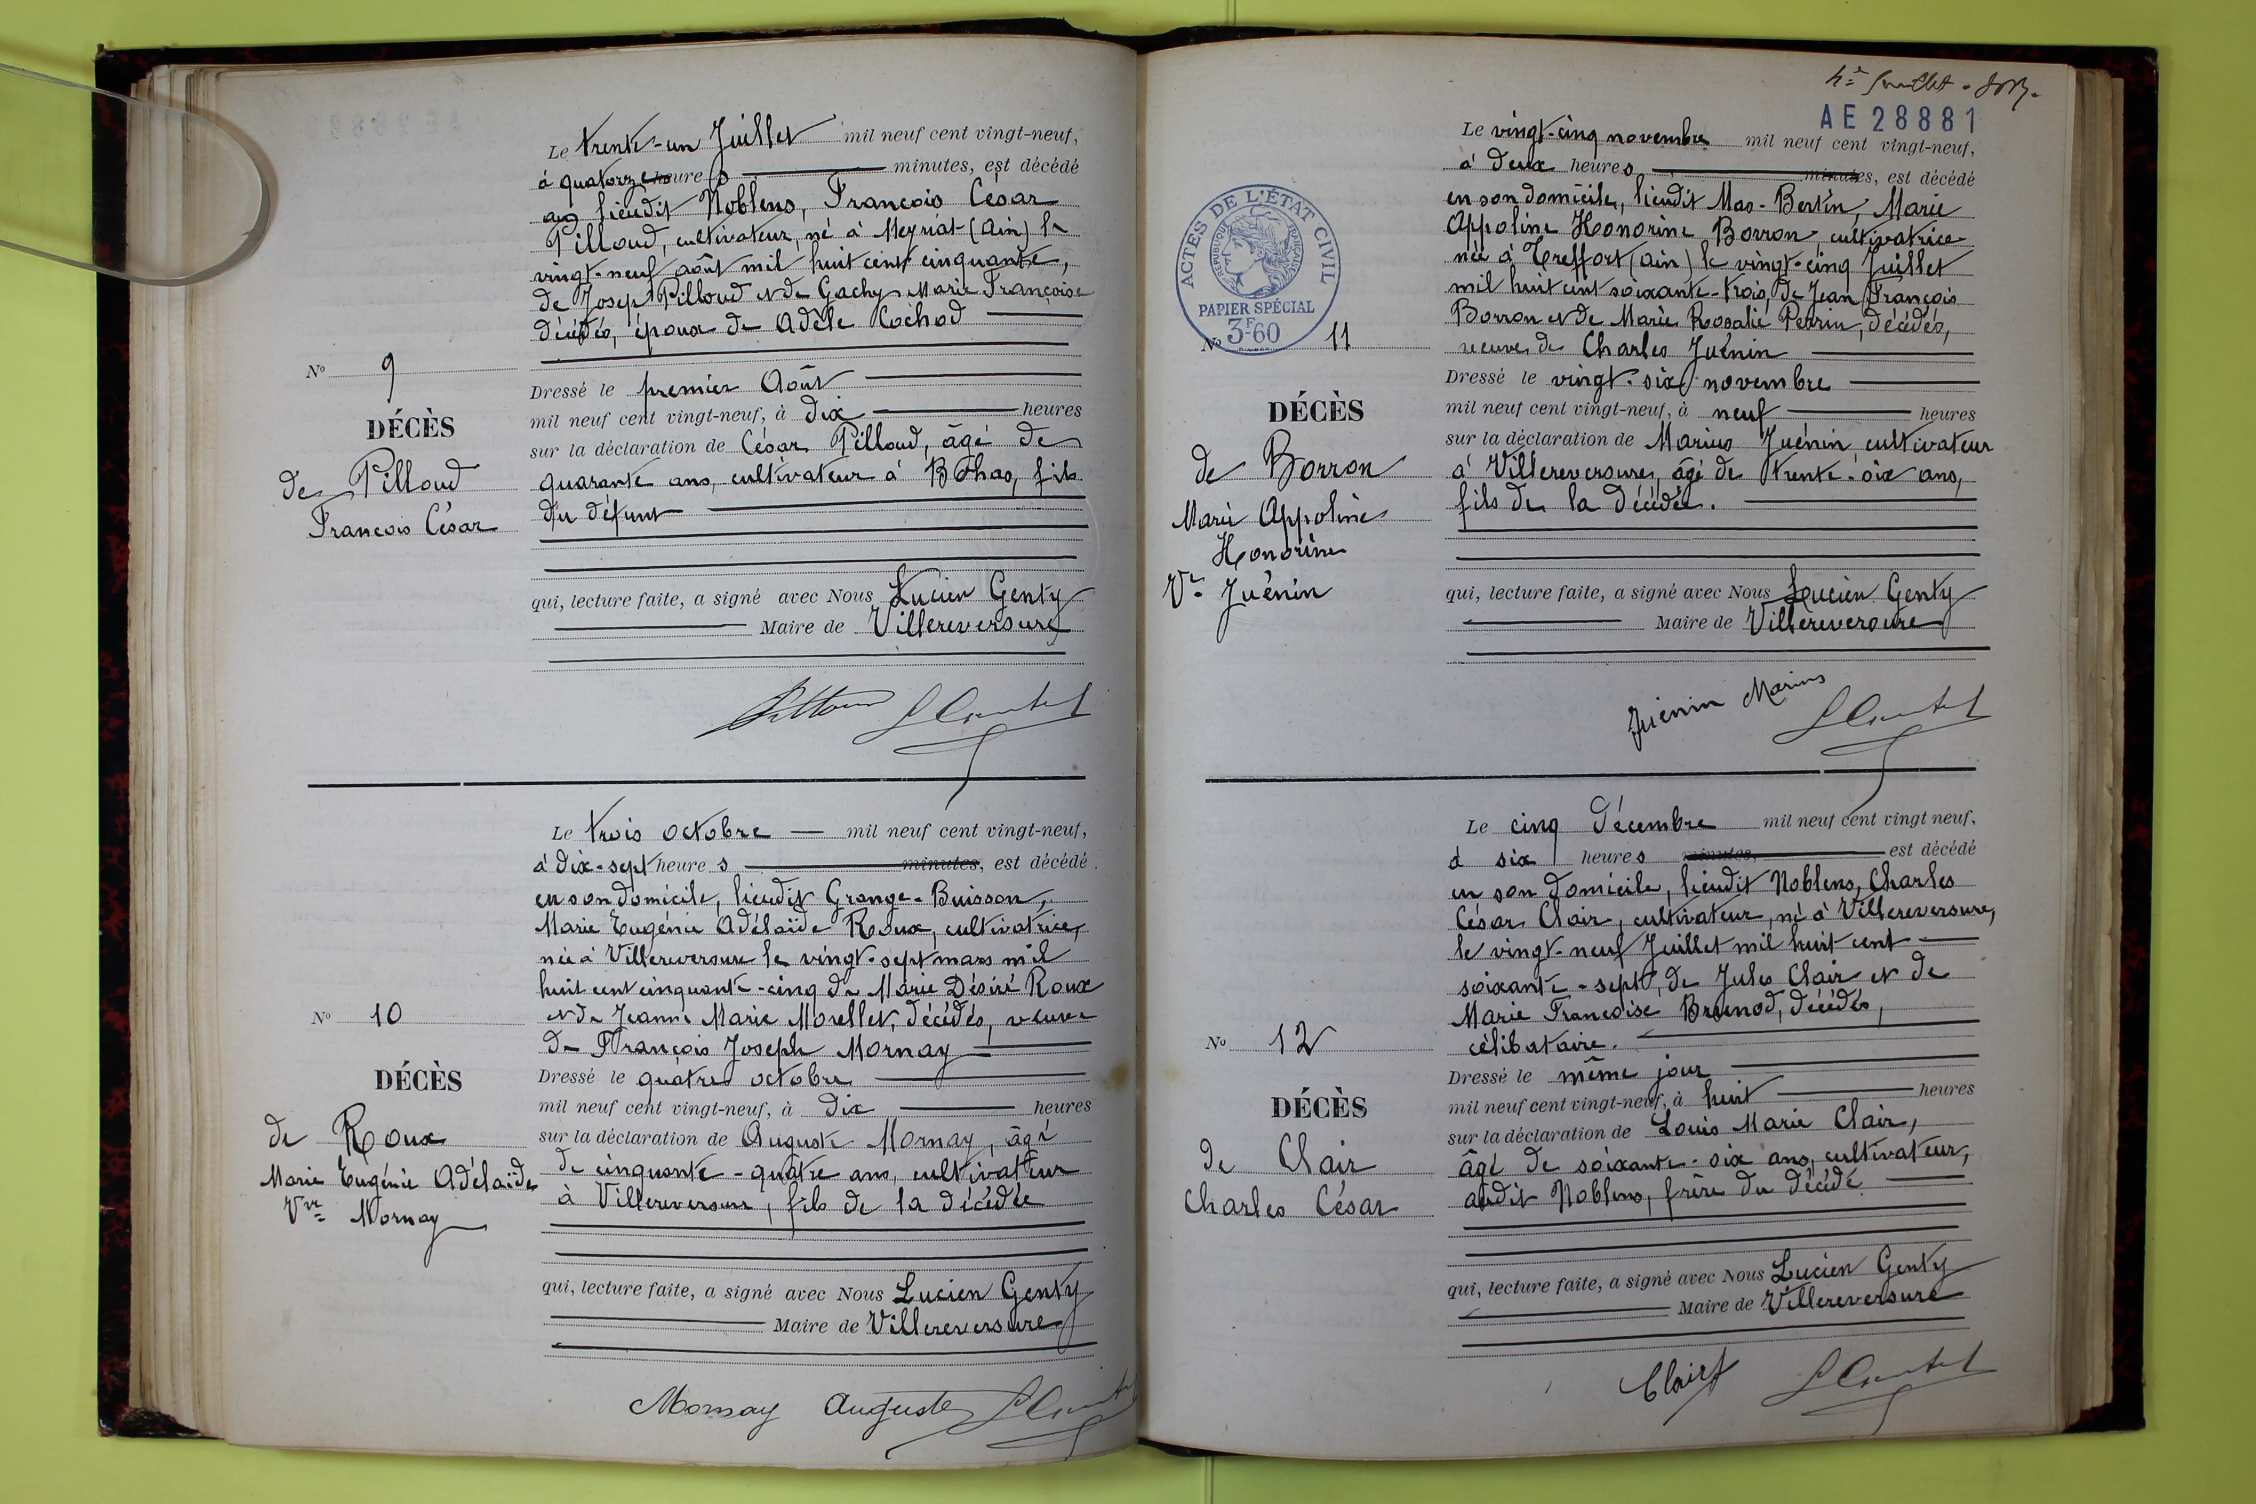 Le trente-un Juillet mil neuf cent vingt-neuf,
à quatorze heures minutes, est décédé
au lieudit Noblens, François César
Pilloud, cultivateur, né à Meyriat (Ain) le
vingt-neuf août mil huit cent cinquante,
de Josep Pilloud et de Gachy Marie Françoise
décédés, époux de Adèle Cochod
N° 9
DÉCÈS
de Pilloud
François César
Dressé le premier Août
mil neuf cent vingt-neuf, à dix heures
sur la déclaration de César Pilloud, âgé de
quarante ans, cultivateur à Bohas, fils
du défunt
qui, lecture faite, a signé avec Nous Lucien Genty
Maire de Villereversure
Le trois octobre mil neuf cent vingt-neuf,
à dix-sept heures minutes, est décédé
en son domicile, lieudit Grange-Buisson,
Marie Eugénie Adélaïde Roux, cultivatrice,
née à Villereversure le vingt-sept mars mil
huit cent cinquante-cinq de Marie Désiré Roux
et de Jeanne Marie Morellet, décédés, veuve
de François Joseph Mornay
N° 10
DÉCÈS
de Roux
Marie Eugénie Adélaïde
Vve Mornay
Dressé le quatre octobre
mil neuf cent vingt-neuf, à dix heures
sur la déclaration de Auguste Mornay, âgé
de cinquante-quatre ans, cultivateur
à Villereversure, fils de la décédée
qui, lecture faite, a signé avec Nous Lucien Genty
Maire de Villereversure
Mornay Auguste
AE 28881
ACTES DE L'ÉTAT CIVIL
RÉPUBLIQUE FRANÇAISE
PAPIER SPÉCIAL
3F60
Le vingt-cinq novembre mil neuf cent vingt-neuf,
à deux heures minutes, est décédé
en son domicile, lieudit Mas-Bertin, Marie
Appoline Honorine Borron, cultivatrice
née à Treffort (Ain) le vingt-cinq Juillet
mil huit cent soixante-trois, de Jean François
Borron et de Marie Rosalie Perrin, décédés,
veuve de Charles Juénin
N° 11
DÉCÈS
de Borron
Marie Appoline
Honorine
Ve Juénin
Dressé le vingt-six novembre
mil neuf cent vingt-neuf, à neuf heures
sur la déclaration de Marius Juénin cultivateur
à Villereversure, âgé de trente-six ans,
fils de la décédée.
qui, lecture faite, a signé avec Nous Lucien Genty
Maire de Villereversure
Juénin Marius
Le cinq Décembre mil neuf cent vingt neuf,
à six heures minutes, est décédé
en son domicile, lieudit Noblens, Charles
César Clair, cultivateur, né à Villereversure,
le vingt-neuf Juillet mil huit cent
soixante-sept, de Jules Clair et de
Marie Françoise Brunod, décédés,
célibataire.
N° 12
DÉCÈS
de Clair
Charles César
Dressé le même jour
mil neuf cent vingt-neuf, à huit heures
sur la déclaration de Louis Marie Clair,
âgé de soixante-six ans, cultivateur,
audit Noblens, frère du décédé
qui, lecture faite, a signé avec Nous Lucien Genty
Maire de Villereversure